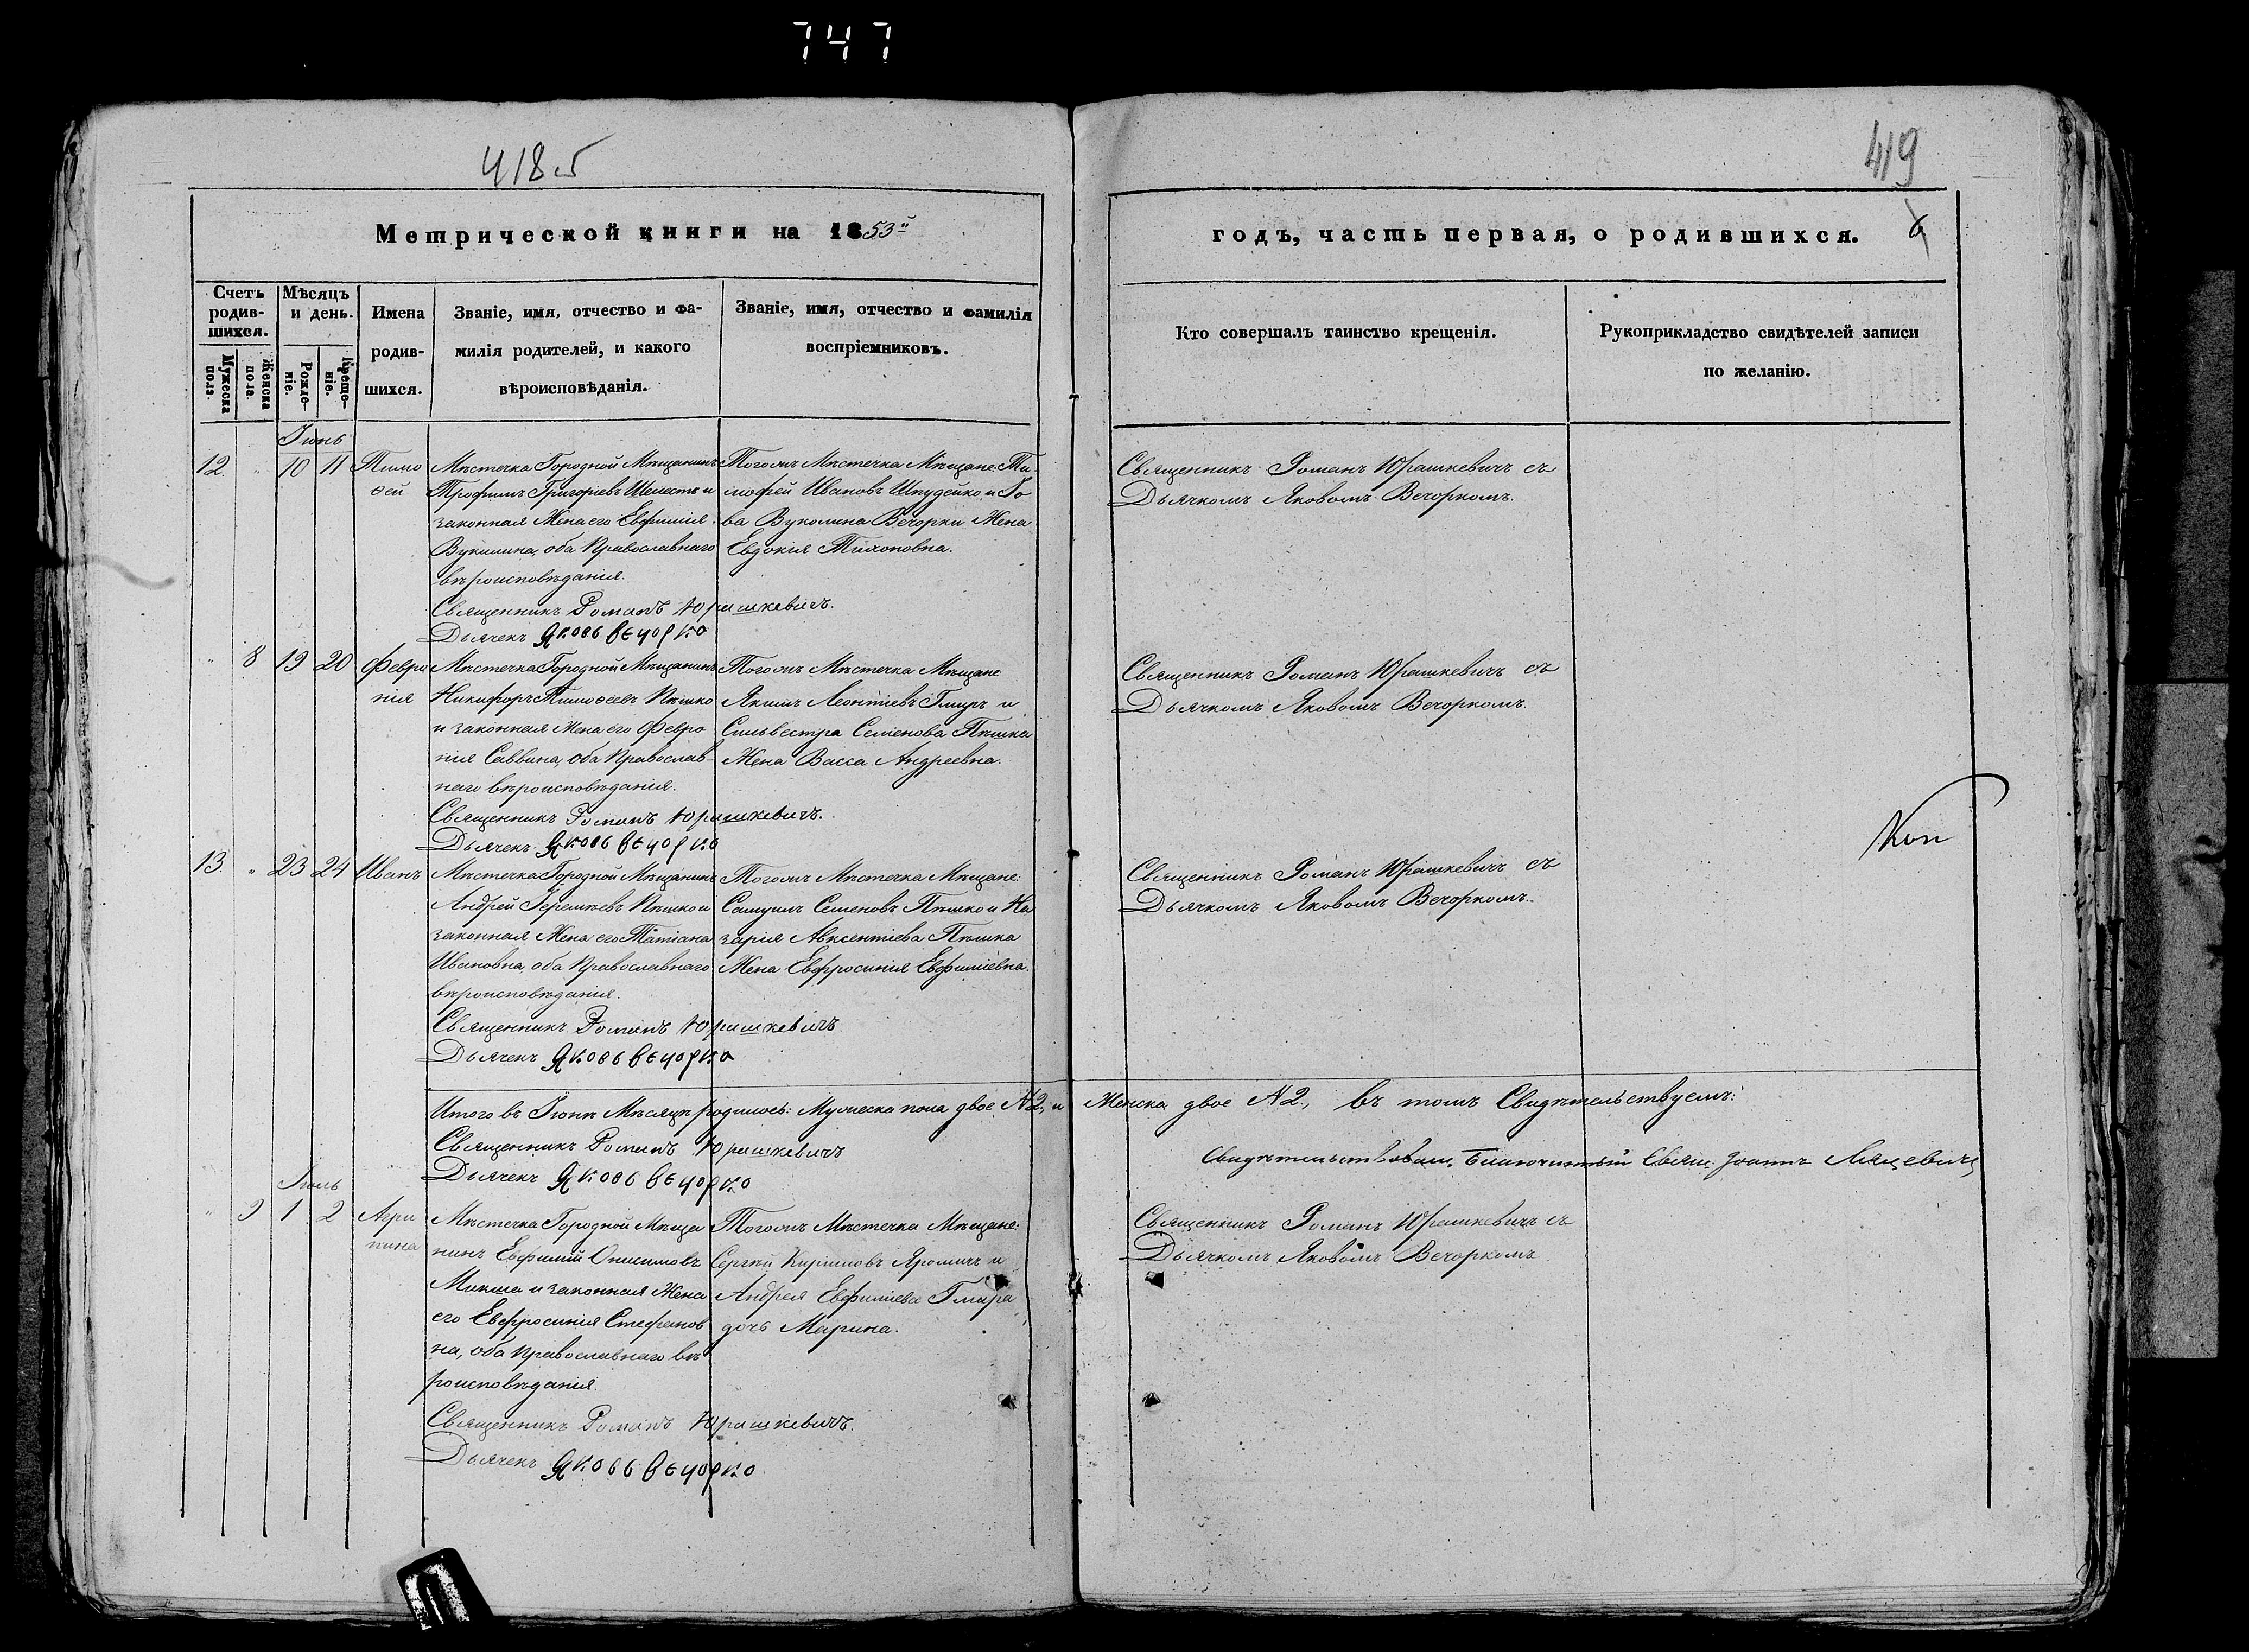 747
418 об
419
Метрической книги на 1853й
годъ, часть первая, о родившихся.
6
Счетъ родив-шихся.
Мужеска пола.
Женска пола.
Мѣсяцъ и день.
Рожде-ніе.
Креще-ніе.
Имена родив-шихся.
Званіе, имя, отчество и фа-
милія родителей, и какого
вѣроисповѣданія.
Званіе, имя, отчество и фамилія
воспріемниковъ.
Кто совершалъ таинство крещенія.
Рукоприкладство свидѣтелей записи
по желанію.
Іюнь
12 " 10 11 Тимо
ѳей
Мѣстечка Городной Мѣщанинъ
Трофимъ Григоріевъ Шелестъ и
законная Жена его Евфимія
Вукилина, оба Православнаго
вѣроисповѣданія.
Священникъ Романъ Юрашкевичъ.
Дьячекъ Яковъ Вечорко
Тогожъ Мѣстечка Мѣщане: Ти-
мофей Ивановъ Шпудейко, и Го
ва Вуколина Вечорки Жена
Евдокія Тихоновна.
Священникъ Романъ Юрашкевичъ съ
Дьячкомъ Яковомъ Вечоркомъ.
" 8 19 20 Февро
нія
Мѣстечка Городной Мѣщанинъ
Никифоръ Тимоѳеевъ Пѣшко
и законная Жена его Февро
нія Саввина, оба Православ-
наго вѣроисповѣданія.
Священникъ Романъ Юрашкевичъ.
Дьячекъ Яковъ Вечорко
Тогожъ Мѣстечка Мѣщане
Якимъ Леонтіевъ Гмиръ и
Сильвестра Семенова Пѣшка
Жена Васса Андреевна.
Священникъ Романъ Юрашкевичъ съ
Дьячкомъ Яковомъ Вечоркомъ.
13. " 23 24 Иванъ
Мѣстечка Городной Мѣщанинъ
Андрей Іереміевъ Пѣшко и
законная Жена его Татіана
Ивановна, оба Православнаго
вѣроисповѣданія.
Священникъ Романъ Юрашкевичъ
Дьячекъ Яковъ Вечорко
Тогожъ Мѣстечка Мѣщане:
Самуилъ Семеновъ Пѣшко и На
зарія Авксентіева Пѣшка
Жена Евфросинія Евфиміевна.
Священникъ Романъ Юрашкевичъ съ
Дьячкомъ Яковомъ Вечоркомъ.
Итого въ Іюнѣ Мѣсяцѣ родилось: Мужеска пола двое №2, и Женска двое №2, въ томъ Свидѣтельствуемъ:
Священникъ Романъ Юрашкевичъ
Дьячекъ Яковъ Вечорко
Свидѣтельствовалъ, Благочинный Свящ. Іоаннъ
Іюль
" 9 1 2 Агри
пина
Мѣстечка Городной Мѣща
нинъ Евфимій Онисимовъ
Микша и законная Жена
его Евфросинія Стефанов
на, оба Православнаго вѣ
роисповѣданія.
Священникъ Романъ Юрашкевичъ.
Дьячекъ Яковъ Вечорко
Тогожъ Мѣстечка Мѣщане:
Сергѣй Кириловъ Яромичъ и
Андрея Евфиміева Гмира
дочь Марина.
Священникъ Романъ Юрашкевичъ съ
Дьячкомъ Яковомъ Вечоркомъ